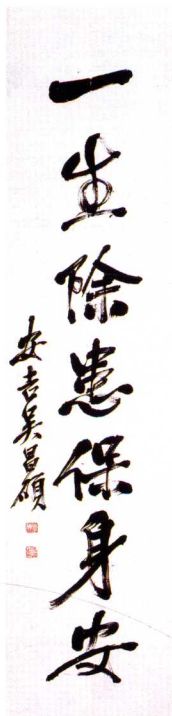 一生除患保身安
安吉吴昌硕